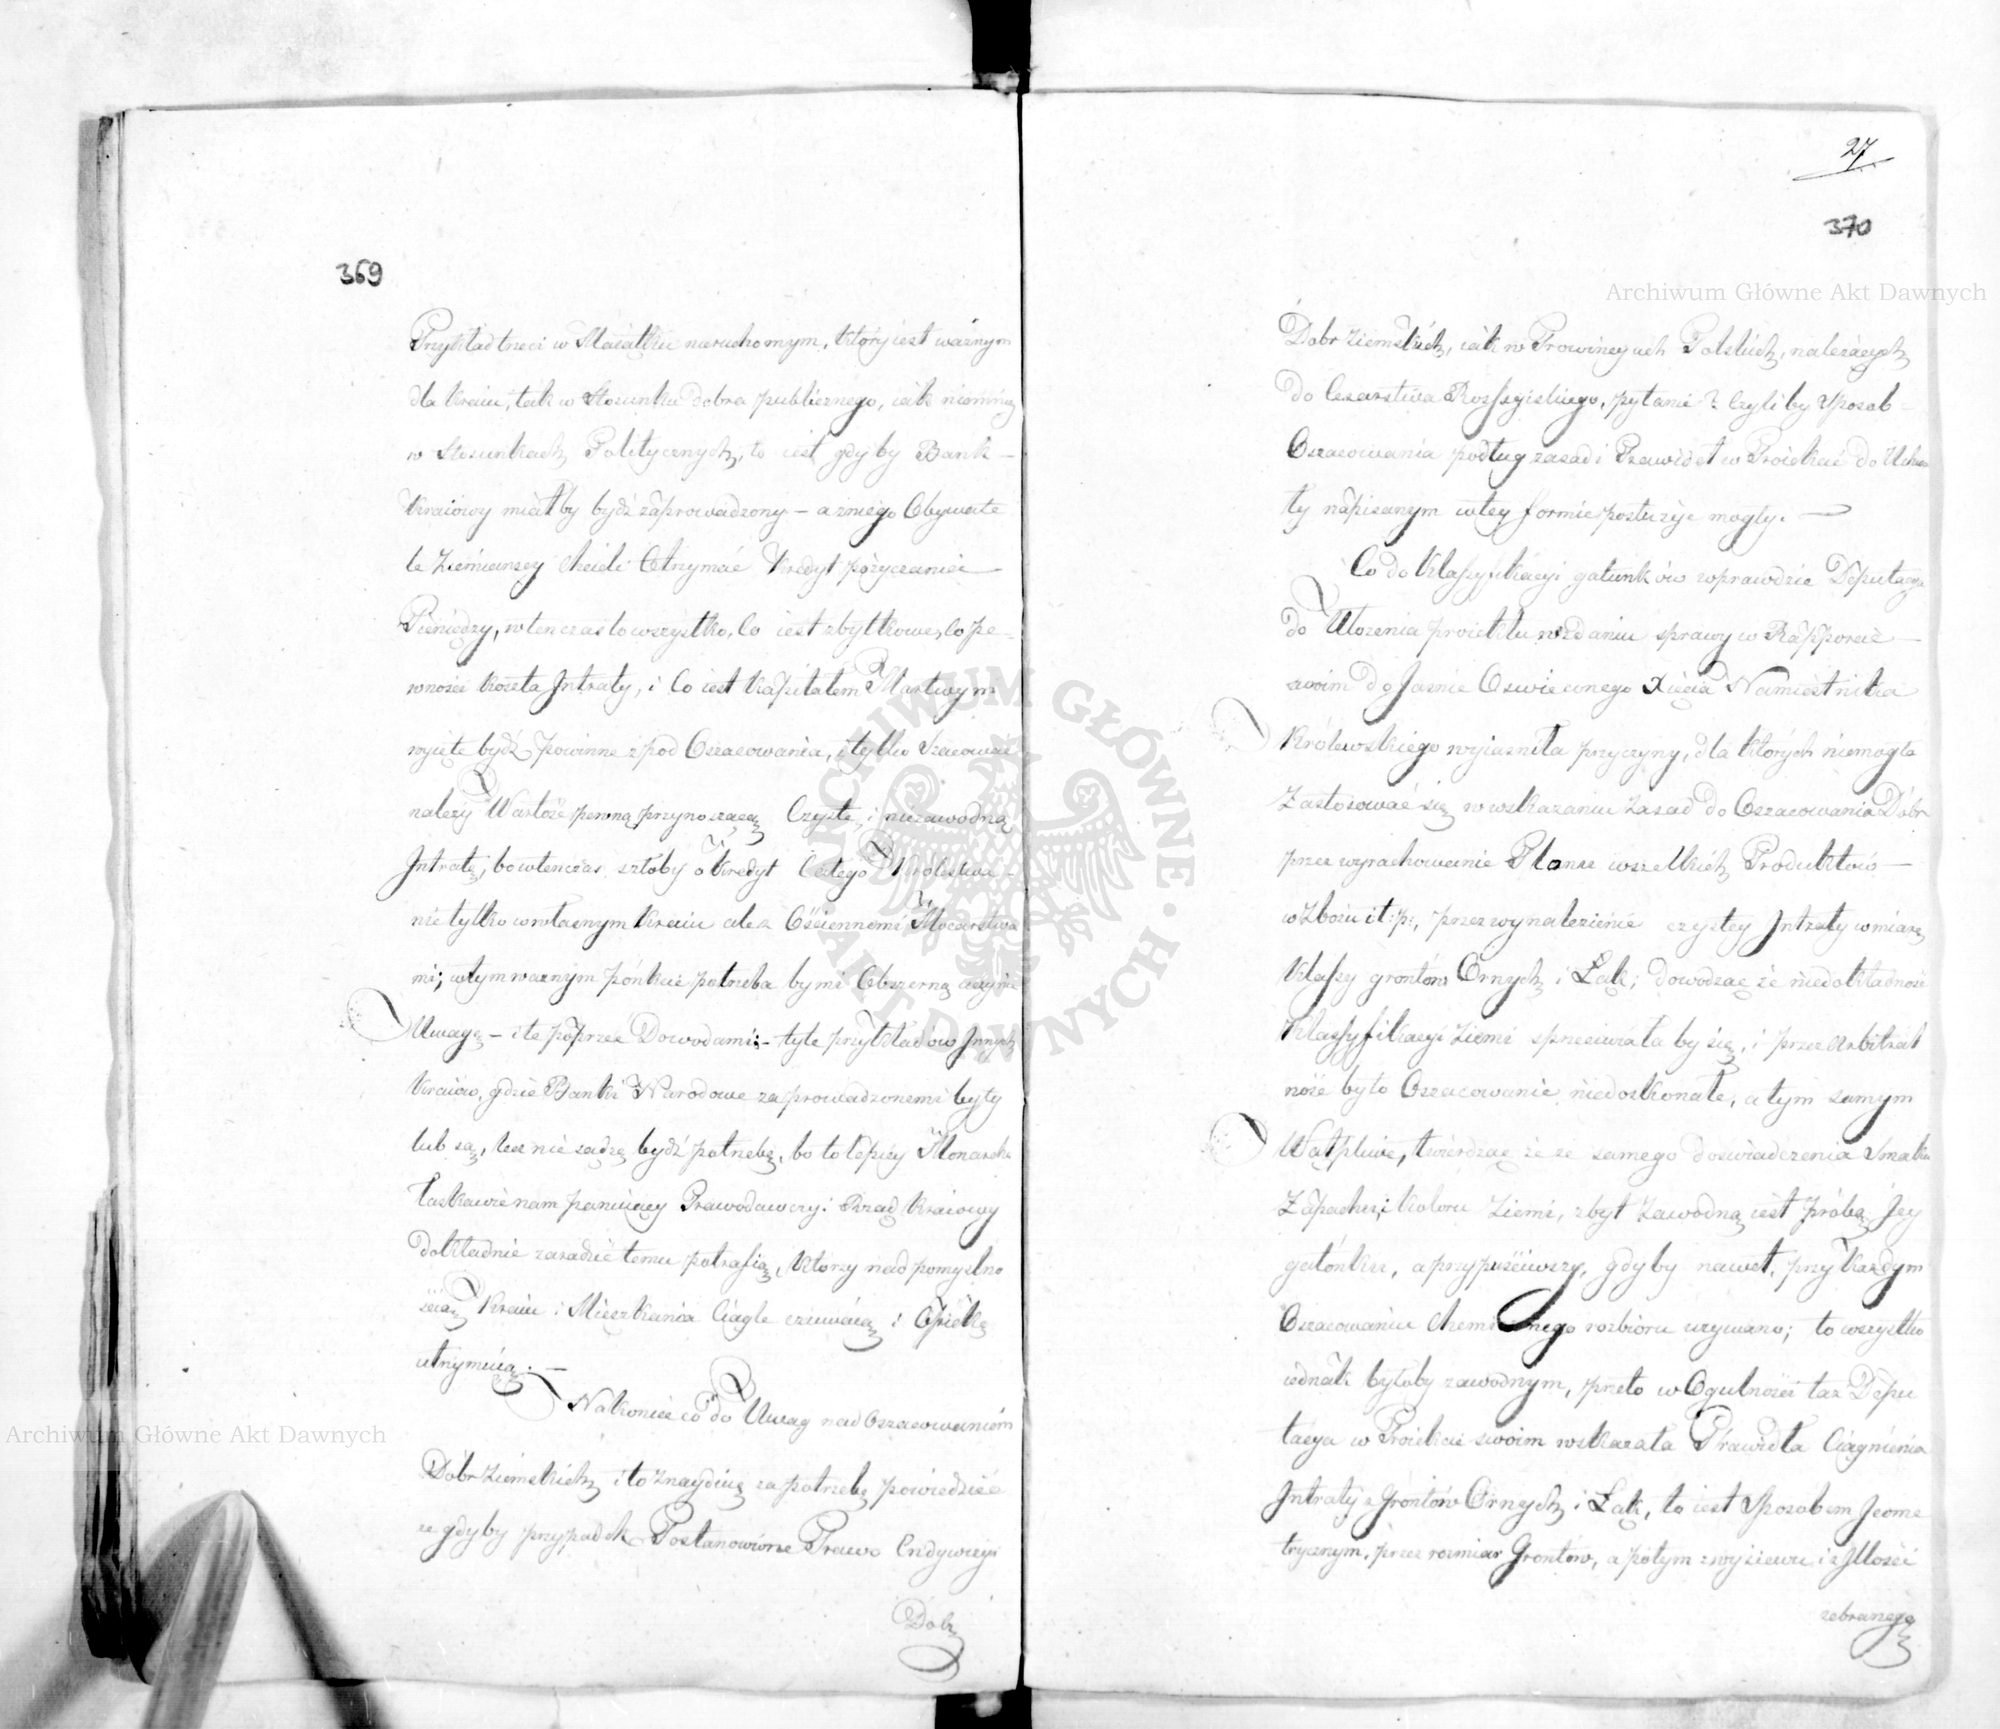 369
Przykład trzeci w Maiątku nieruchomym, który iest ważnym
dla Kraiu, tak w Stosunku dobra publicznego, iak niemniey
w Stosunkach Politycznych, to iest gdyby Bank –
Kraiowy miał by bydź zaprowadzony – a z niego Obywate
le Ziemianscy chcieli Otrzymać Kredyt pożyczania
Pieniędzy, w ten czas to wszystko, Co iest zbytkowe, Co pe–
wności koszta Intraty, i Co iest Kapitałem Martwym
wyięte bydź powinne z pod Oszacowania, i tylko Szacować
należy Wartość pewną przynoszącą Czystą, i niezawodną
Intratę, bo wtenczas szłoby o Kredyt Całego Królestwa –
nie tylko w własnym Kraiu ale z Ościennemi Mocarstwa
mi; w tym ważnym pónkcie potrzeba by mi Obszerną uczynić
Uwagę – i te poprzeć Dowodami; – tyle przykładów Innych
Kraiów, gdzie Banki Narodowe zaprowadzonemi były
lub są, lecz nie sądzę bydź potrzebę, bo to lepiey Monarcha
Łaskawie nam panuiący Prawodawczy i Rząd Kraiowy
dokładnie zaradzić temu potrafią, którzy nad pomyślno
ścią Kraiu i Mieszkania Ciągle czuwaią i Opiekę
utrzymuią. –
Nakoniec co do Uwag nad Oszacowaniem
Dóbr Ziemskich i to znayduię za potrzebę powiedzieć
że gdyby przypadek Postanowione Prawo
Dobr
27
370
Dobr Ziemskich, iak w Prowincyach Polskich, należących
do Cesarstwa Rossyiskiego, pytanie? Czyli by Sposob –
Oszacowania podług zasad i Prawideł w Proiekcie do Uchwa
ły napisanym w tey formie posłużyć mogły. –
Co do Klassyfikacyi gatunków wprawdzie Deputacya
do Ułożenia proiektu w zdaniu sprawy w Rapporcie –
swoim do Jaśnie Oswieconego Xięcia Namiestnika
Królewskiego wyiaśniła przyczyny, dla których niemogła
Zastosować się w wskazaniu zasad do Oszacowania Dóbr
przez wyrachowanie Plonu wszelkich Produktów –
w Zbożu i t: p:, przez wynalezienie czystey Intraty w miarę
Klassy grontów Ornych i Łąk; dowodząc że niedokładność
Klassyfikacyi Ziemi sprzeciwiała by się, i przez Arbitral
ność było Oszacowanie niedoskonałe, a tym samym
Wątpliwe, twierdząc że ze samego doświadczenia Smaku
Zapachu, i Koloru Ziemi, zbyt Zawodną iest próbą Jey
gatónku, a przypuściwszy, gdyby nawet, przy Każdym
Oszacowaniu chemicznego rozbioru używano; to wszystko
iednak byłoby zawodnym, przeto w Ogulności taż Depu
tacya w Proiekcie swoim wskazała Prawidła Ciągnienia
Intraty z Grontów Ornych i Łąk, to iest Sposobem Jeome
trycznym, przez rozmiar Grontów, a potym z wysiewu i z Ilości
zebranego
Archiwum Główne Akt Dawnych
Archiwum Główne Akt Dawnych
ARCHIWUM GŁÓWNE AKT DAWNYCH